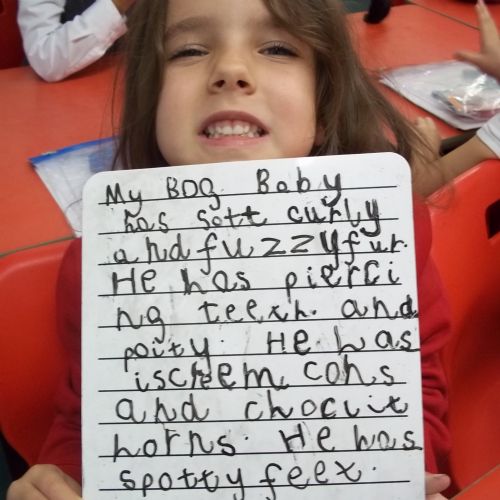 My BOG Baby
has soft curly
and fuzzy fur.
He has pierci
ng teeth. and
poity. He has
ischem cons
and chocit
horns. He has
spotty feet.